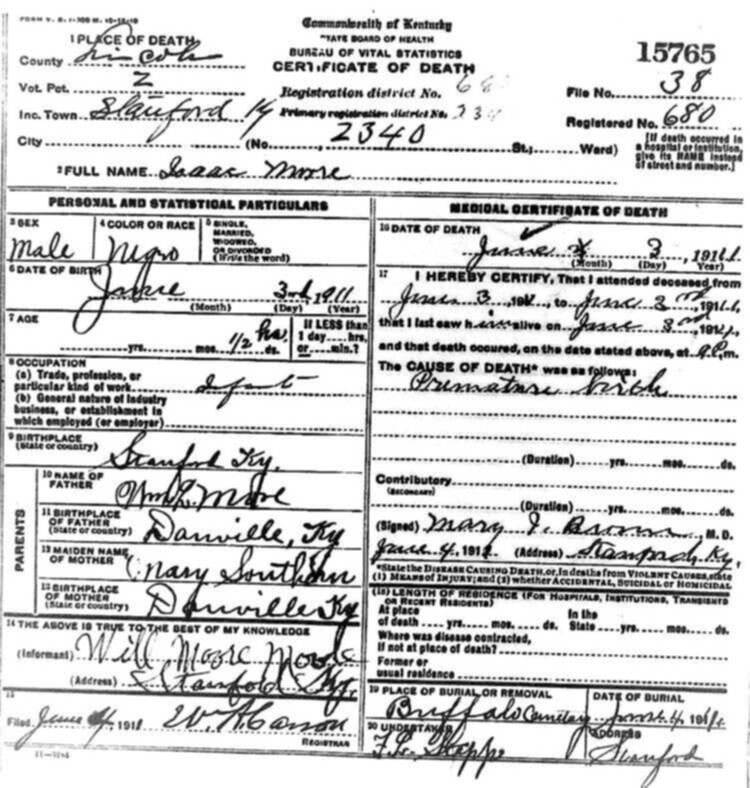 FORM V. S. 1-300 M. 10-10-10
Commonwealth of Kentucky
STATE BOARD OF HEALTH
BUREAU OF VITAL STATISTICS
CERTIFICATE OF DEATH
15765
1 PLACE OF DEATH
County Lincoln
Vot. Pct. 2
Inc. Town Stanford Ky
City (No. 2340 St.; Ward)
Registration district No. 68
Primary registration district No. 234
File No. 38
Registered No. 680
[If death occurred in a hospital or institution, give its NAME instead of street and number.]
2 FULL NAME Isaac Moore
PERSONAL AND STATISTICAL PARTICULARS
3 SEX
Male
4 COLOR OR RACE
Negro
5 SINGLE, MARRIED, WIDOWED, OR DIVORCED (Write the word)
6 DATE OF BIRTH
June 3rd, 1911
(Month) (Day) (Year)
7 AGE
yrs. mos. 1/2 hrs. ds.
If LESS than 1 day....hrs, or....min.?
8 OCCUPATION
(a) Trade, profession, or particular kind of work Infant
(b) General nature of industry business, or establishment in which employed (or employer)
9 BIRTHPLACE
(State or country)
Stanford Ky.
PARENTS
10 NAME OF FATHER
Wm L Moore
11 BIRTHPLACE OF FATHER (State or country)
Danville, Ky
12 MAIDEN NAME OF MOTHER
Mary Southern
13 BIRTHPLACE OF MOTHER (State or country)
Danville Ky
14 THE ABOVE IS TRUE TO THE BEST OF MY KNOWLEDGE
(Informant) Will Moore
(Address) Stanford Ky.
15
Filed June 4, 1911
REGISTRAR
MEDICAL CERTIFICATE OF DEATH
16 DATE OF DEATH
June 3, 1911
(Month) (Day) (Year)
17 I HEREBY CERTIFY, That I attended deceased from
June 3 1911, to June 3rd, 1911,
that I last saw him alive on June 3rd, 1911,
and that death occured, on the date stated above, at 9 P.m.
The CAUSE OF DEATH* was as follows:
Premature birth
(Duration) yrs. mos. ds.
Contributory
(SECONDARY)
(Duration) yrs. mos. ds.
(Signed) Mary J. Brown, M.D.
June 4, 1911 (Address) Stanford, Ky.
*State the DISEASE CAUSING DEATH, or, in deaths from VIOLENT CAUSES, state (1) MEANS OF INJURY; and (2) whether ACCIDENTAL, SUICIDAL OR HOMICIDAL
(18) LENGTH OF RESIDENCE (FOR HOSPITALS, INSTITUTIONS, TRANSIENTS OR RECENT RESIDENTS)
At place of death yrs. mos. ds. In the State yrs. mos. ds.
Where was disease contracted, if not at place of death?
Former or usual residence
19 PLACE OF BURIAL OR REMOVAL
Buffalo Cemetery
DATE OF BURIAL
June 4, 1911
20 UNDERTAKER
ADDRESS
Stanford